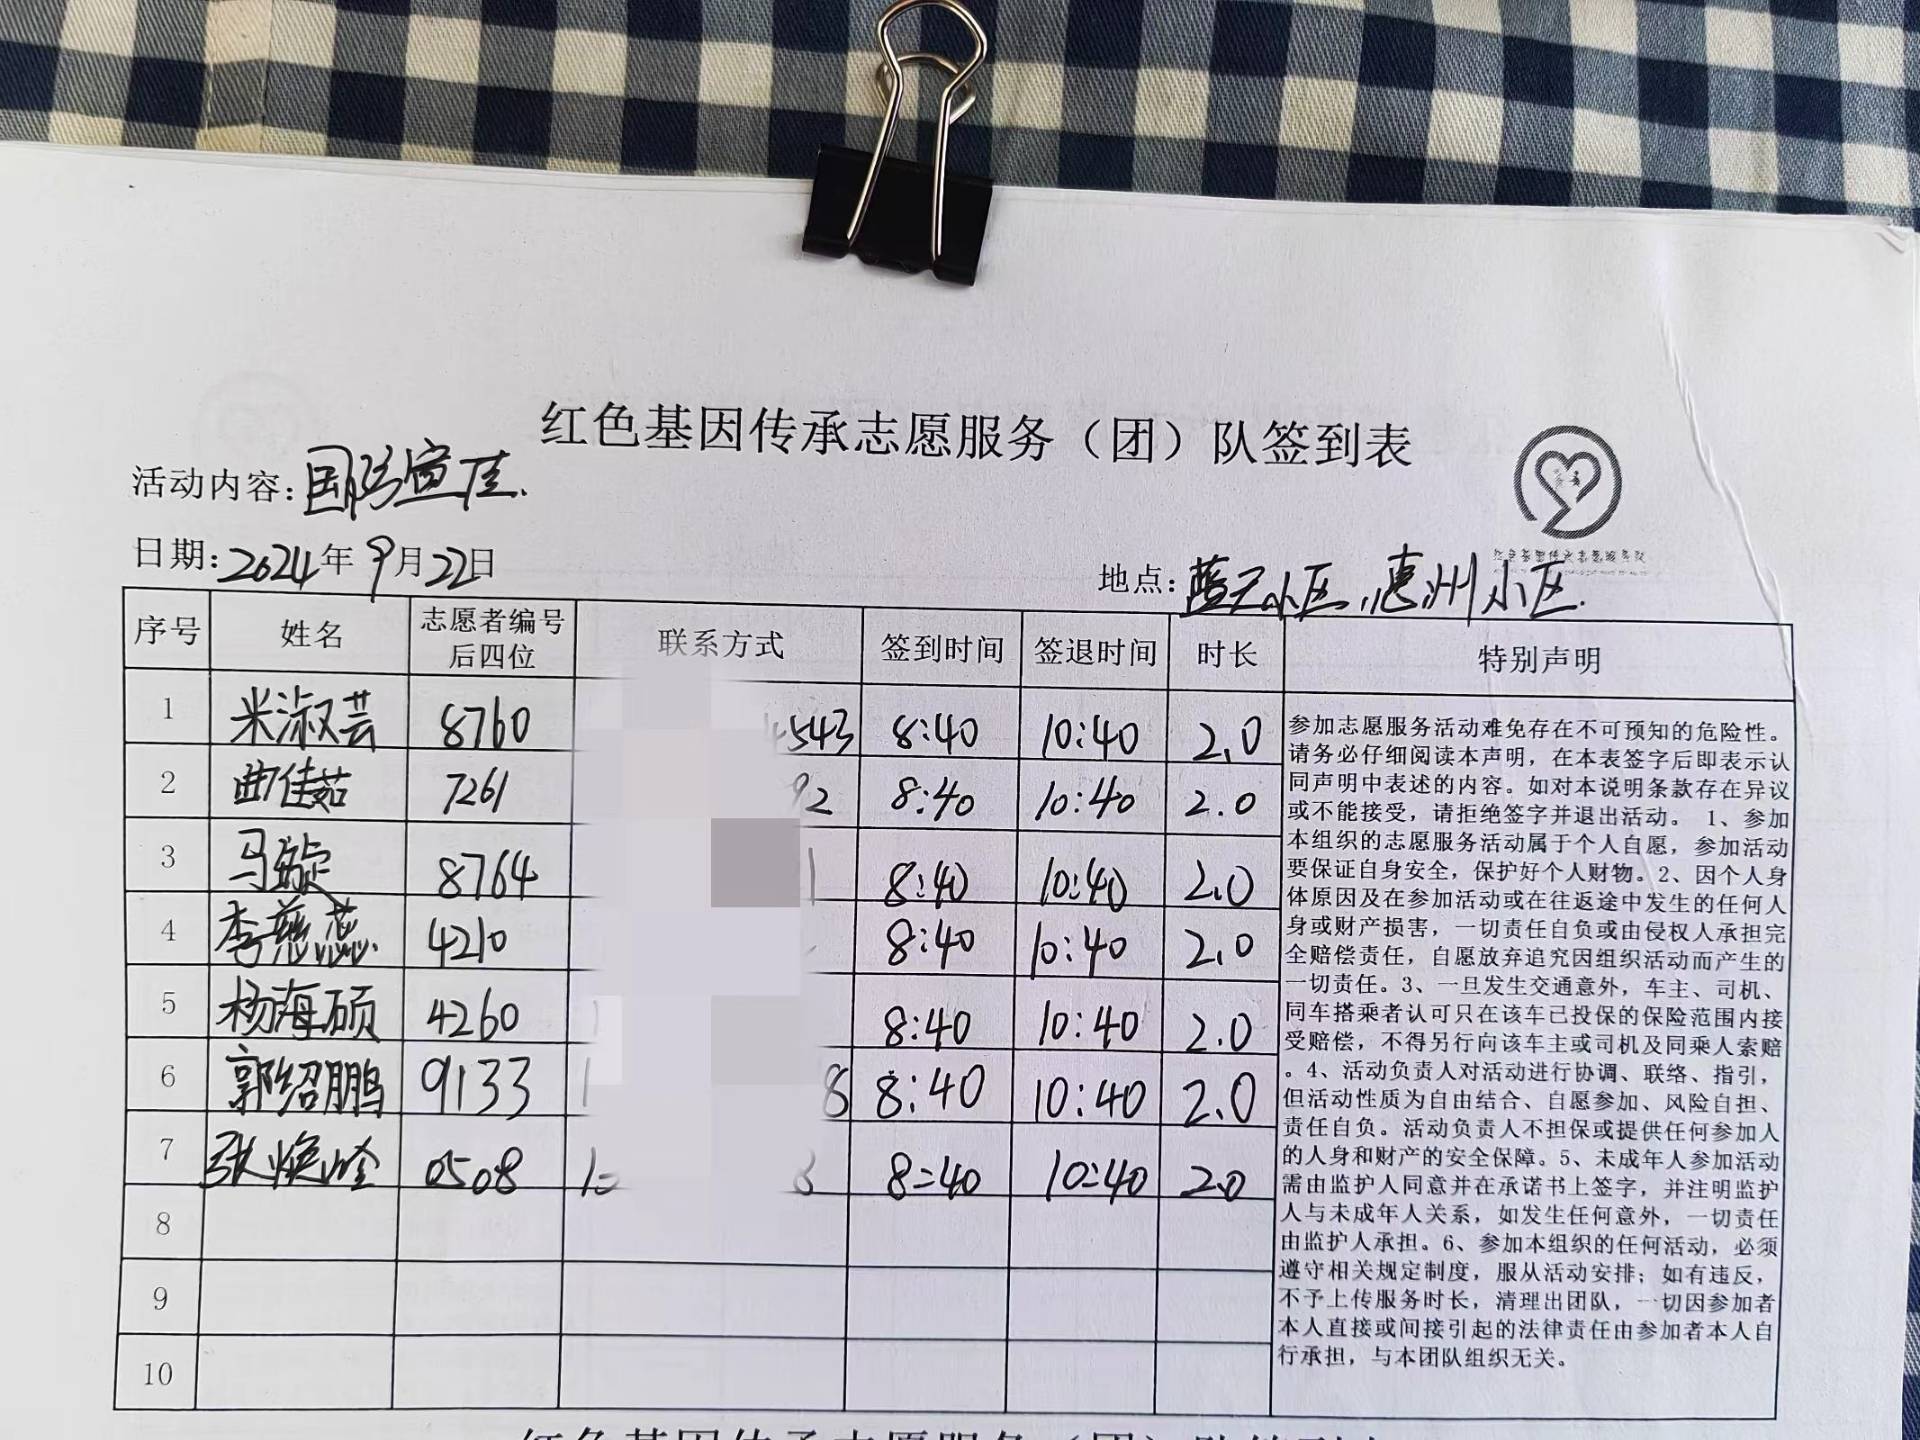 红色基因传承志愿服务（团）队签到表
活动内容：国防宣传.
日期：2024年9月22日
地点：蓝天小区，惠州小区.
红色基因传承志愿服务队
序号 姓名 志愿者编号后四位 联系方式 签到时间 签退时间 时长 特别声明
1 米淑芸 8760 4543 8:40 10:40 2.0
2 曲佳茹 7261 92 8:40 10:40 2.0
3 马 8764 1 8:40 10:40 2.0
4 李慈蕊 4210 8:40 10:40 2.0
5 杨海硕 4260 1 8:40 10:40 2.0
6 郭绍鹏 9133 1 8 8:40 10:40 2.0
7 张焕玲 0508 1 3 8:40 10:40 2.0
8
9
10
参加志愿服务活动难免存在不可预知的危险性。
请务必仔细阅读本声明，在本表签字后即表示认
同声明中表述的内容。如对本说明条款存在异议
或不能接受，请拒绝签字并退出活动。 1、参加
本组织的志愿服务活动属于个人自愿，参加活动
要保证自身安全，保护好个人财物。2、因个人身
体原因及在参加活动或在往返途中发生的任何人
身或财产损害，一切责任自负或由侵权人承担完
全赔偿责任，自愿放弃追究因组织活动而产生的
一切责任。3、一旦发生交通意外，车主、司机、
同车搭乘者认可只在该车已投保的保险范围内接
受赔偿，不得另行向该车主或司机及同乘人索赔
。4、活动负责人对活动进行协调、联络、指引，
但活动性质为自由结合、自愿参加、风险自担、
责任自负。活动负责人不担保或提供任何参加人
的人身和财产的安全保障。5、未成年人参加活动
需由监护人同意并在承诺书上签字，并注明监护
人与未成年人关系，如发生任何意外，一切责任
由监护人承担。6、参加本组织的任何活动，必须
遵守相关规定制度，服从活动安排；如有违反，
不予上传服务时长，清理出团队，一切因参加者
本人直接或间接引起的法律责任由参加者本人自
行承担，与本团队组织无关。
红色基因传承志愿服务（团）队签到表